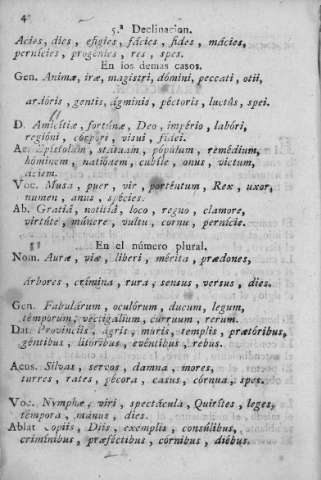 4
5.ª Declinacion.
Acies, dies, efigies, fácies, fides, mácies,
pernicies, progénies, res, spes.
En los demas casos.
Gen. Animæ, iræ, magistri, dómini, peccati, otii,
ardóris, gentis, ágminis, péctoris, luctûs, spei.
D. Amicitiæ, fortúnæ, Deo, império, labóri,
regióni, córpori, visui, fidei.
Ac. Epístolam, státuam, pópulum, remédium,
hóminem, natiónem, cubíle, onus, victum,
aciem.
Voc. Musa, puer, vir, porténtum, Rex, uxor,
numen, anus, spécies.
Ab. Gratiâ, notitiâ, loco, regno, clamore,
virtúte, múnere, vultu, cornu, pernície.
En el número plural.
Nom. Auræ, viæ, liberi, mérita, prædones,
árbores, crímina, rura, sensus, versus, dies.
Gen. Fabulárum, oculórum, ducum, legum,
témporum, vectigálium, cúrruum, rerum.
Dat. Provinciis, agris, muris, templis, prætóribus,
géntibus, litóribus, evéntibus, rebus.
Acus. Silvas, servos, damna, mores,
turres, rates, pécora, casus, córnua, spes.
Voc. Nymphæ, viri, spectácula, Quirítes, leges,
témpora, manus, dies.
Ablat. Copiis, Diis, exemplis, consúlibus,
crimínibus, præféctibus, córnibus, diébus.